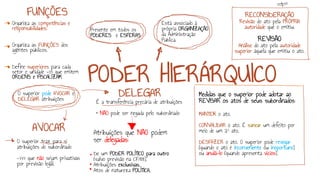 FUNÇÕES
Organiza as competências e
responsabilidades.
Organiza as FUNÇÕES dos
agentes públicos.
Define superiores para cada
setor e unidade → os quem emitem
ORDENS e FISCALIZAM
Presente em todos os
PODERES e ESFERAS.
Está associado à
própria ORGANIZAÇÃO
da Administração
Pública.
RECONSIDERAÇÃO
Revisão do ato pela PRÓPRIA
autoridade que o emitiu.
REVISÃO
Análise do ato pela autoridade
superior àquela que emitiu o ato.
PODER HIERÁRQUICO
O superior pode AVOCAR e
DELEGAR atribuições
AVOCAR
O superior atrai para si
atribuições do subordinado
→ as que não sejam privativas
por previsão legal.
DELEGAR
É a transferência precária de atribuições
• NÃO pode ser negada pelo subordinado
Atribuições que NÃO podem
ser delegadas:
• De um PODER POLÍTICO para outro
(salvo previsão na CF/88);
• Atribuições exclusivas;
• Atos de natureza POLÍTICA.
Medidas que o superior pode adotar ao
REVISAR os atos de seus subordinados:
MANTER o ato.
CONVALIDAR o ato. É sanear um defeito por
meio de um 2º ato.
DESFAZER o ato. O superior pode revogá-
(quando o ato é inconveniente ou inoportuno)
ou anulá-lo (quando apresenta vícios).